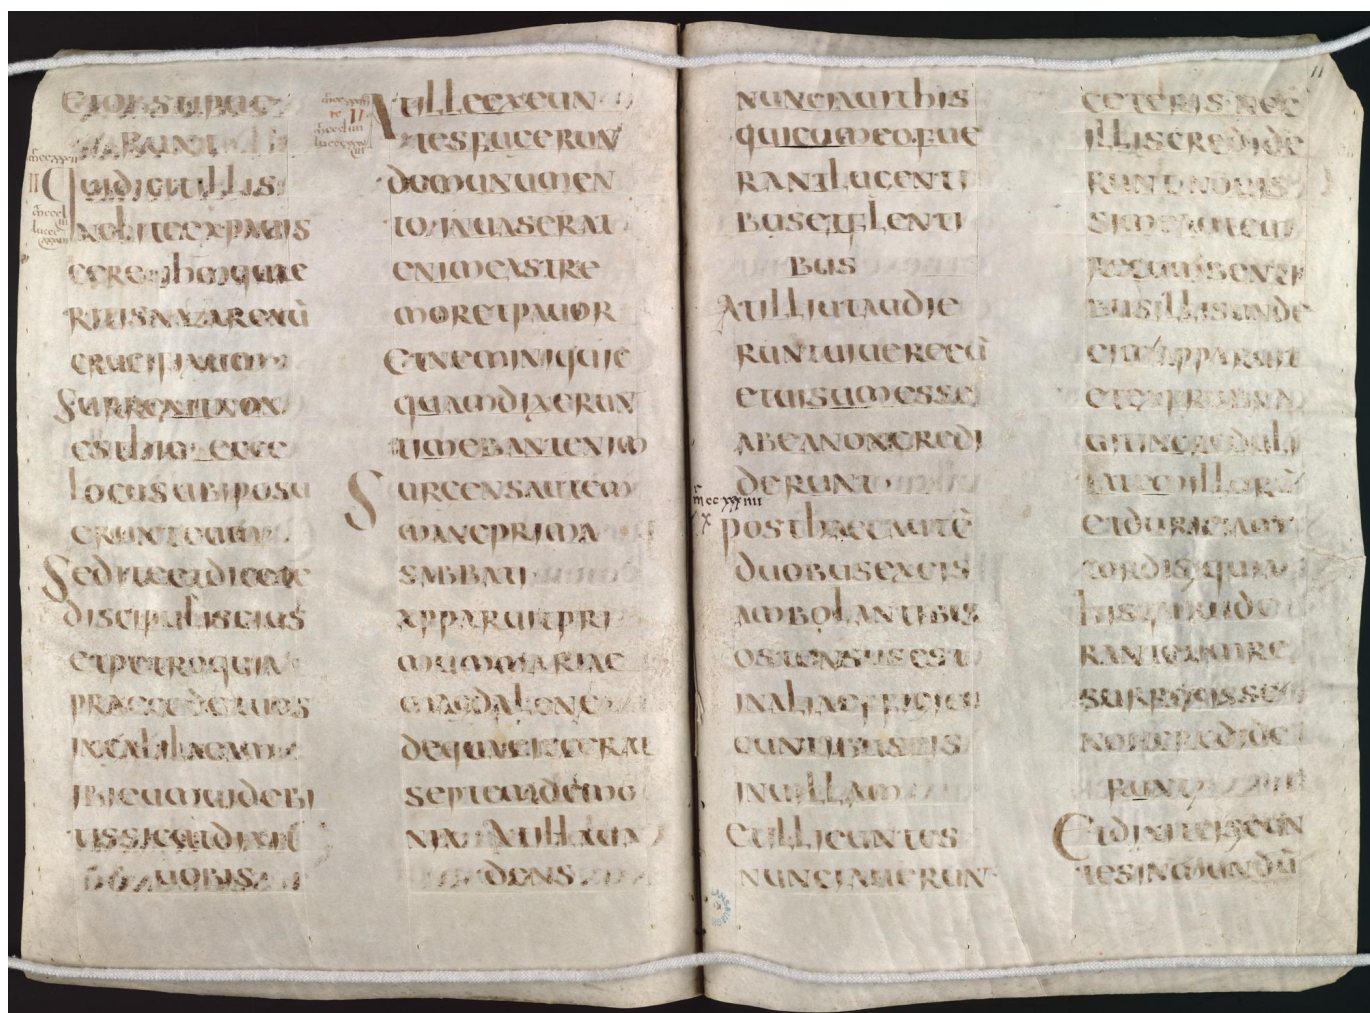 etobstupue
quidicitillis
noliteexpaues
cereihmquae
ritisnazarenū
crucifixum
surrexitnon
esthicecce
locusubiposu
eranteum
seditedicite
discipuliseius
etpetroquia
praecedituos
ingalilaeam
ibieumuidebi
tissicutdixit
uobis
atilleexeun
tesfugerun
demonumen
toinuaserat
enimeastre
moretpauor
etneminiquic
quamdixerun
timebantenim
surgensautem
maneprima
sabbati
apparuitpri
mummariae
magdalene
dequaeiecerat
septemdemo
nia atillauа
dens
nunciauithis
quicumeofue
rantlugenti
busetflenti
bus
atilliutaudie
runtuiuereeū
etuisumesse
abeanoncredi
derunt
mccxxxiiii
x
posthaecautē
duobusexeis
ambolantibus
ostensusest
inaliaeffigie
euntibuseis
inuillam
etillieuntes
nunciauerun
ceterisnec
illiscredide
runtnouis
simeautem
recumbenti
busillisunde
cimapparuit
etexprobra
uitincreduli
tatemillorū
etduritiam
cordisquia
hisquiuide
ranteumre
surrexisse
noncredide
runt
etdixiteiseun
tesinmundū
11